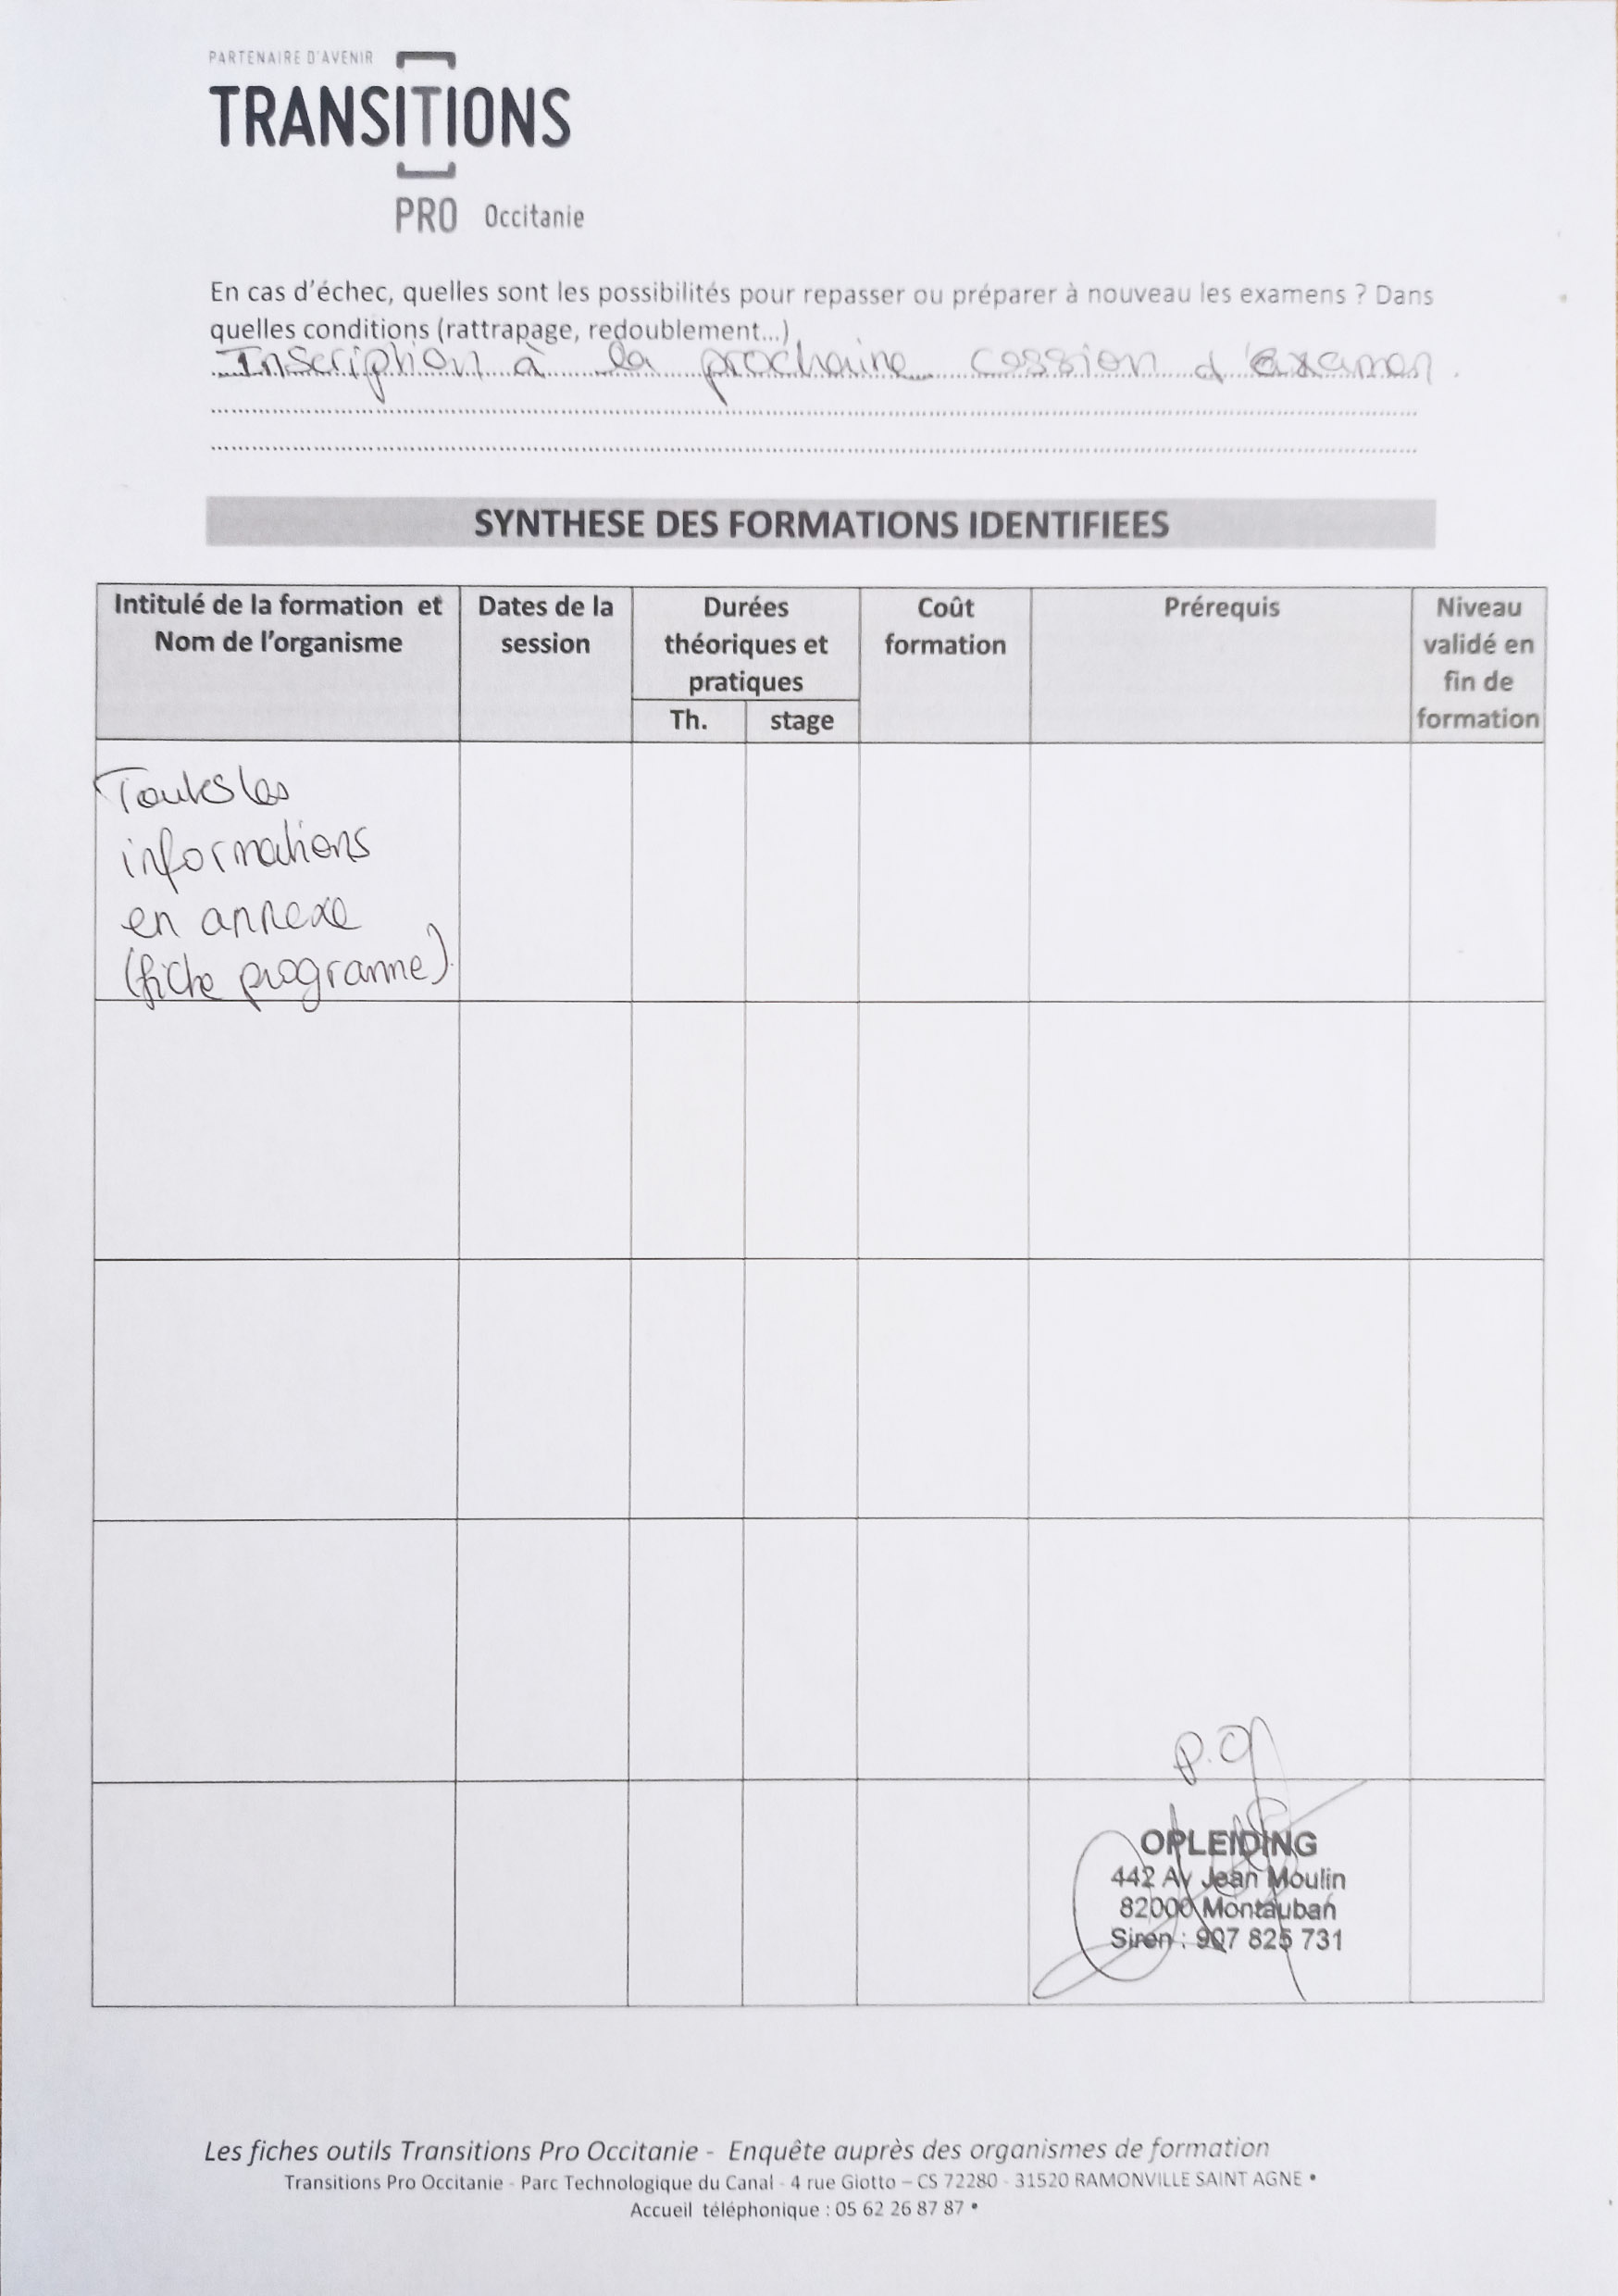 PARTENAIRE D'AVENIR
TRANSITIONS
PRO Occitanie
En cas d'échec, quelles sont les possibilités pour repasser ou préparer à nouveau les examens ? Dans
quelles conditions (rattrapage, redoublement...)
Inscription à la prochaine cession d'examen.
SYNTHESE DES FORMATIONS IDENTIFIEES
Intitulé de la formation et
Nom de l'organisme
Dates de la
session
Durées
théoriques et
pratiques
Th.
stage
Coût
formation
Prérequis
Niveau
validé en
fin de
formation
Toutes les
informations
en annexe
(fiche programme).
P.O
OPLEIDING
442 Av Jean Moulin
82000 Montauban
Siren : 907 825 731
Les fiches outils Transitions Pro Occitanie - Enquête auprès des organismes de formation
Transitions Pro Occitanie - Parc Technologique du Canal - 4 rue Giotto – CS 72280 - 31520 RAMONVILLE SAINT AGNE •
Accueil téléphonique : 05 62 26 87 87 •